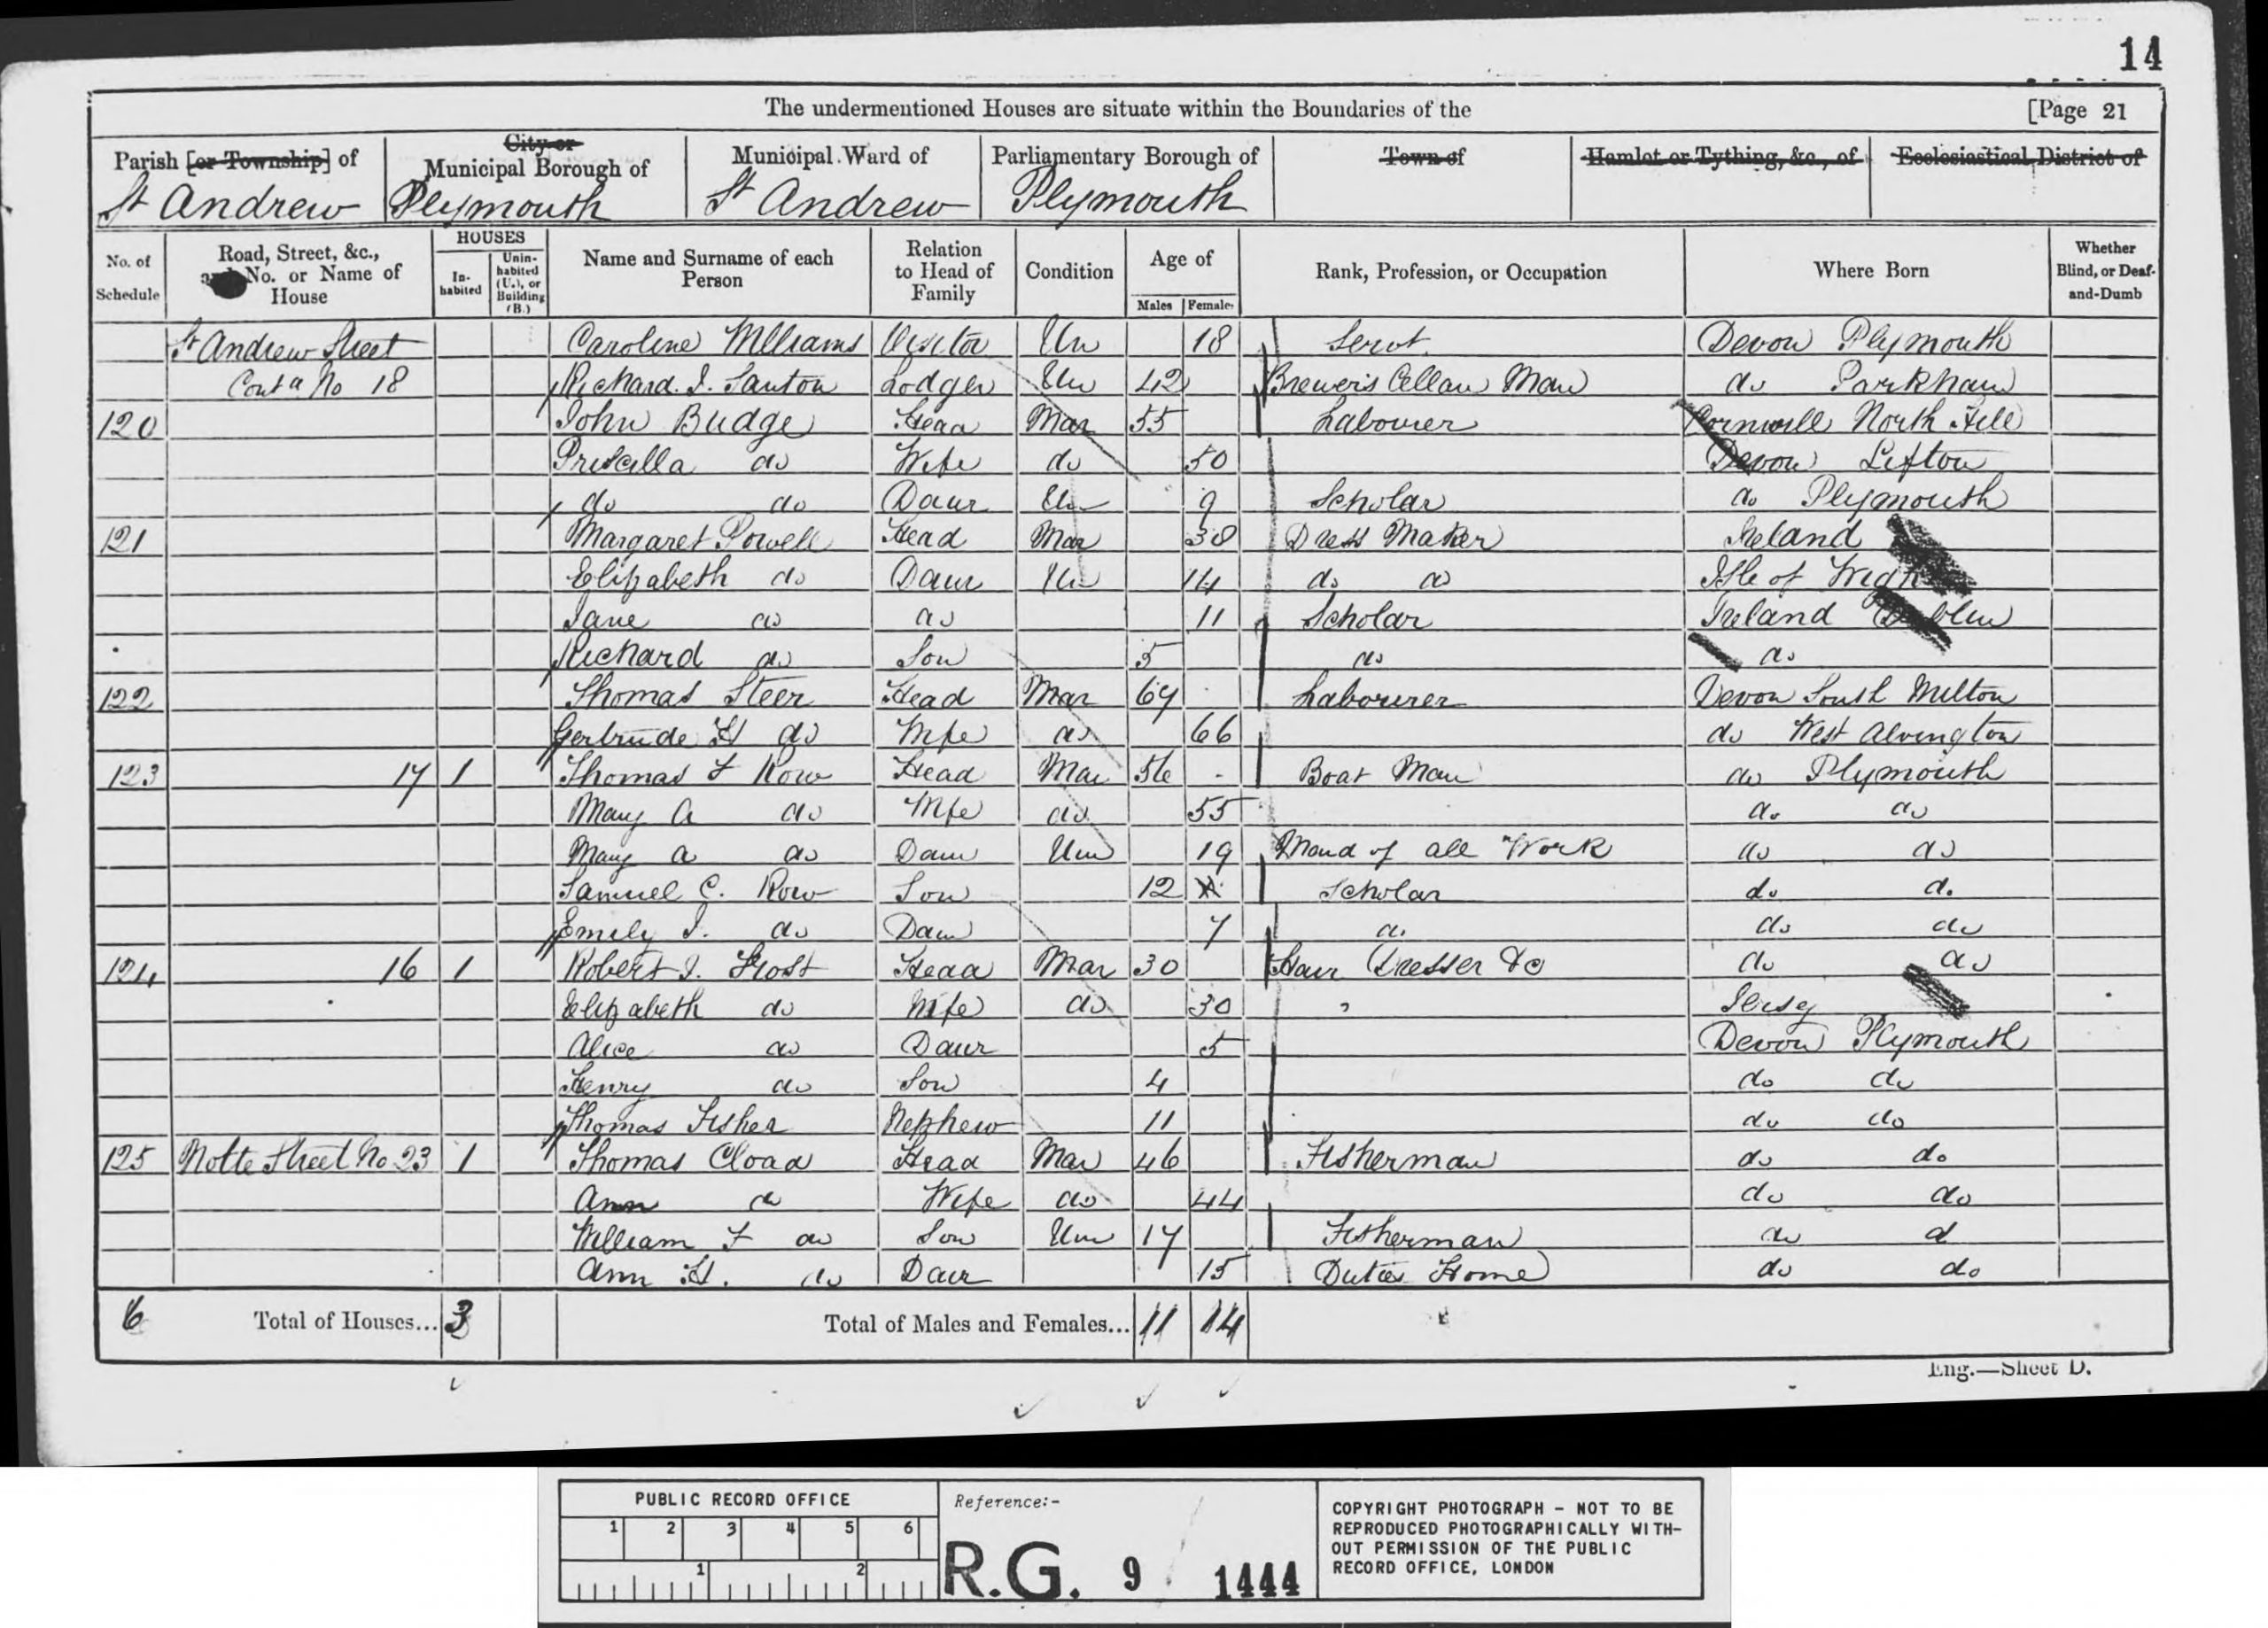 14
The undermentioned Houses are situate within the Boundaries of the [Page 21
Parish [or Township] of City or Municipal Borough of Municipal Ward of Parliamentary Borough of Town of Hamlet or Tything, &c., of Ecclesiastical District of
St Andrew Plymouth St Andrew Plymouth
No. of Schedule Road, Street, &c., and No. or Name of House HOUSES Inhabited Uninhabited (U.), or Building (B.) Name and Surname of each Person Relation to Head of Family Condition Age of Males Females Rank, Profession, or Occupation Where Born Whether Blind, or Deaf-and-Dumb
St Andrew Street Caroline Williams Visitor Un 18 Servt Devon Plymouth
Contd No 18 Richard J. Santon Lodger Un 42 Brewers Cellar Man do Parkham
120 John Budge Head Mar 55 Labourer Cornwall North Hill
Priscilla do Wife do 50 Devon Lifton
do do Daur Un 9 Scholar do Plymouth
121 Margaret Powell Head Mar 38 Dress Maker Ireland
Elizabeth do Daur Un 14 do do Isle of Wight
Jane do do 11 Scholar Ireland Dublin
Richard do Son 5 do do
122 Thomas Steer Head Mar 67 Labourer Devon South Milton
Gertrude H do Wife do 66 do West Alvington
123 17 1 Thomas F Row Head Mar 56 Boat Man do Plymouth
Mary A do Wife do 55 do do
Mary A do Daur Un 19 Maid of all Work do do
Samuel C. Row Son 12 Scholar do do
Emily J. do Daur 7 do do do
124 16 1 Robert J. Frost Head Mar 30 Hair Dresser &c do do
Elizabeth do Wife do 30 Jersey
Alice do Daur 5 Devon Plymouth
Henry do Son 4 do do
Thomas Fisher Nephew 11 do do
125 Notte Street No 23 1 Thomas Cload Head Mar 46 Fisherman do do
Ann do Wife do 44 do do
William F do Son Un 17 Fisherman do d
Ann H. do Daur 15 Duties Home do do
6 Total of Houses... 3 Total of Males and Females... 11 14
Eng.—Sheet D.
PUBLIC RECORD OFFICE
1 2 3 4 5 6
1 2
Reference:-
R.G. 9 1444
COPYRIGHT PHOTOGRAPH - NOT TO BE
REPRODUCED PHOTOGRAPHICALLY WITH-
OUT PERMISSION OF THE PUBLIC
RECORD OFFICE, LONDON